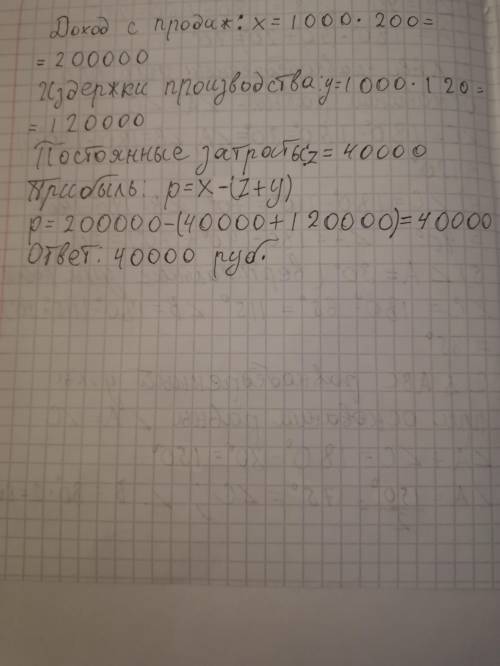 Доход с продаж: x = 1000 · 200 =
= 200000
Издержки производства: y = 1000 · 120 =
= 120000
Постоянные затраты: z = 40000
Прибыль: p = x - (z + y)
p = 200000 - (40000 + 120000) = 40000
Ответ: 40000 руб.